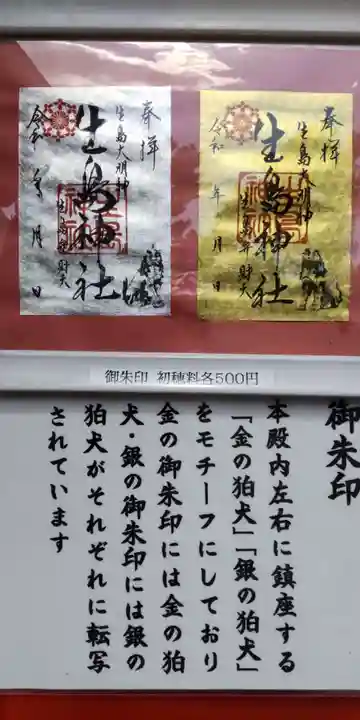 奉拝
生島大明神
生島神社
生島弁財天
令和 年 月 日
奉拝
生島大明神
生島神社
生島弁財天
令和 年 月 日
御朱印 初穂料各500円
御朱印
本殿内左右に鎮座する
「金の狛犬」「銀の狛犬」
をモチーフにしており
金の御朱印には金の狛
犬・銀の御朱印には銀の
狛犬がそれぞれに転写
されています